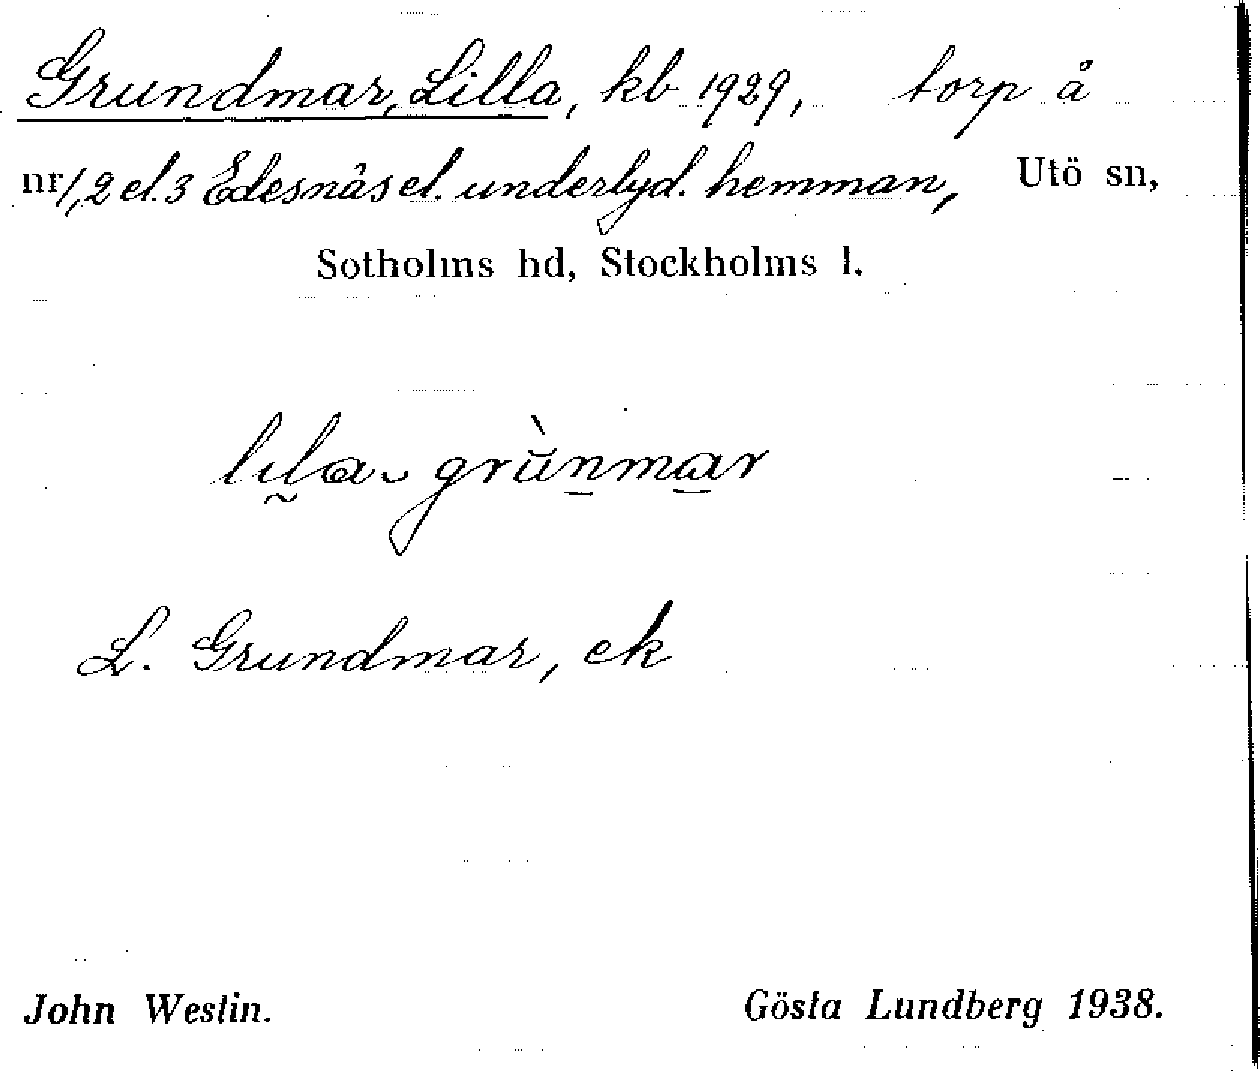 Grundmar, Lilla, kb 1929, torp å
nr 1, 2 el. 3 Edesnäs el. underlyd. hemman, Utö sn,
Sotholms hd, Stockholms l.
lıla grùnmar
L. Grundmar, ek
John Westin. Gösta Lundberg 1938.